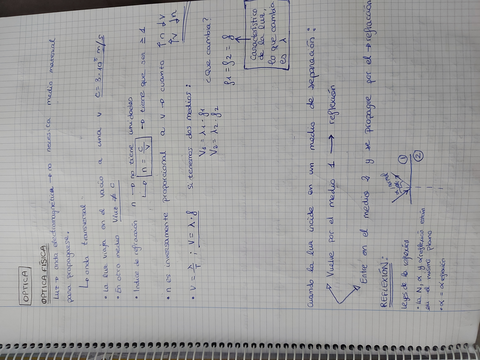 OPTICA
OPTICA FÍSICA
Luz → onda electromagnética → no necesita medio material
para propagarse.
↳ onda transversal
• La luz viaja en el vacío a una v c = 3·10⁸ m/s
• En otro medio Vluz ≠ c
• Índice de refracción n → no tiene unidades
↳ n = c/v → tiene que ser ≥ 1
• n es inversamente proporcional a v → cuanta ↑n ↓v
↑v ↓n
• v = λ/T ; v = λ·f
si tenemos dos medios:
V₁ = λ₁·f₁
V₂ = λ₂·f₂
¿Que cambia?
f₁ = f₂ = f
Característico
de la luz,
lo que cambia
es λ
cuando la luz incide en un medio de separación:
Vuelve por el medio 1 → reflexión
Entre en el medio 2 y se propague por él → refracción
REFLEXIÓN:
Leyes de la
• La N,
en el mismo plano
normal
1
2